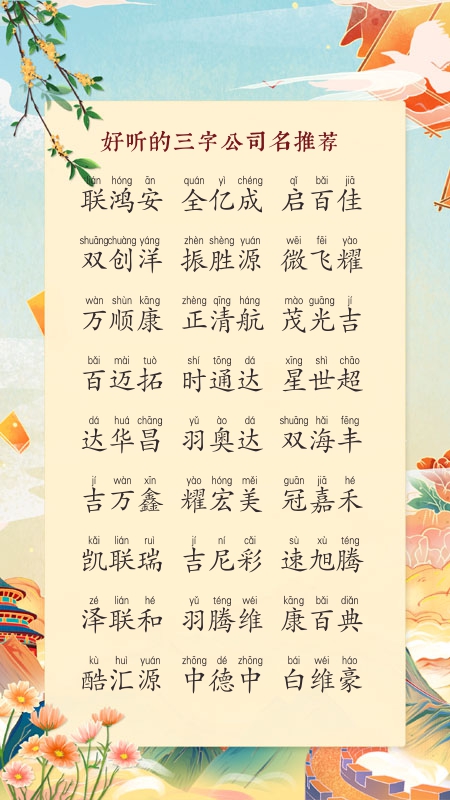 好听的三字公司名推荐
lián hóng ān quán yì chéng qǐ bǎi jiā
联鸿安 全亿成 启百佳
shuāng chuàng yáng zhèn shèng yuán wēi fēi yào
双创洋 振胜源 微飞耀
wàn shùn kāng zhèng qīng háng mào guāng jí
万顺康 正清航 茂光吉
bǎi mài tuò shí tōng dá xīng shì chāo
百迈拓 时通达 星世超
dá huá chāng yǔ ào dá shuāng hǎi fēng
达华昌 羽奥达 双海丰
jí wàn xīn yào hóng měi guān jiā hé
吉万鑫 耀宏美 冠嘉禾
kǎi lián ruì jí ní cǎi sù xù téng
凯联瑞 吉尼彩 速旭腾
zé lián hé yǔ téng wéi kāng bǎi diǎn
泽联和 羽腾维 康百典
kù huì yuán zhōng dé zhōng bái wéi háo
酷汇源 中德中 白维豪